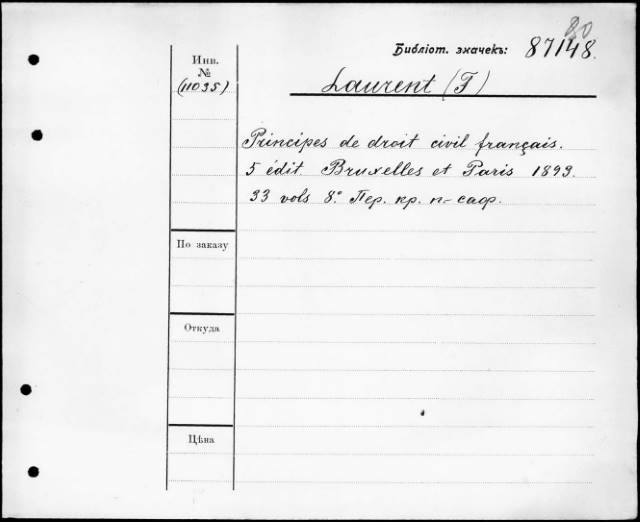 80
Библіот. значекъ: 87148.
Инв.
№
(11035)
Laurent (F)
Principes de droit civil français.
5 édit. Bruxelles et Paris 1893.
33 vols 8.° Пер. кр. п.-саф.
По заказу
Откуда
Цѣна